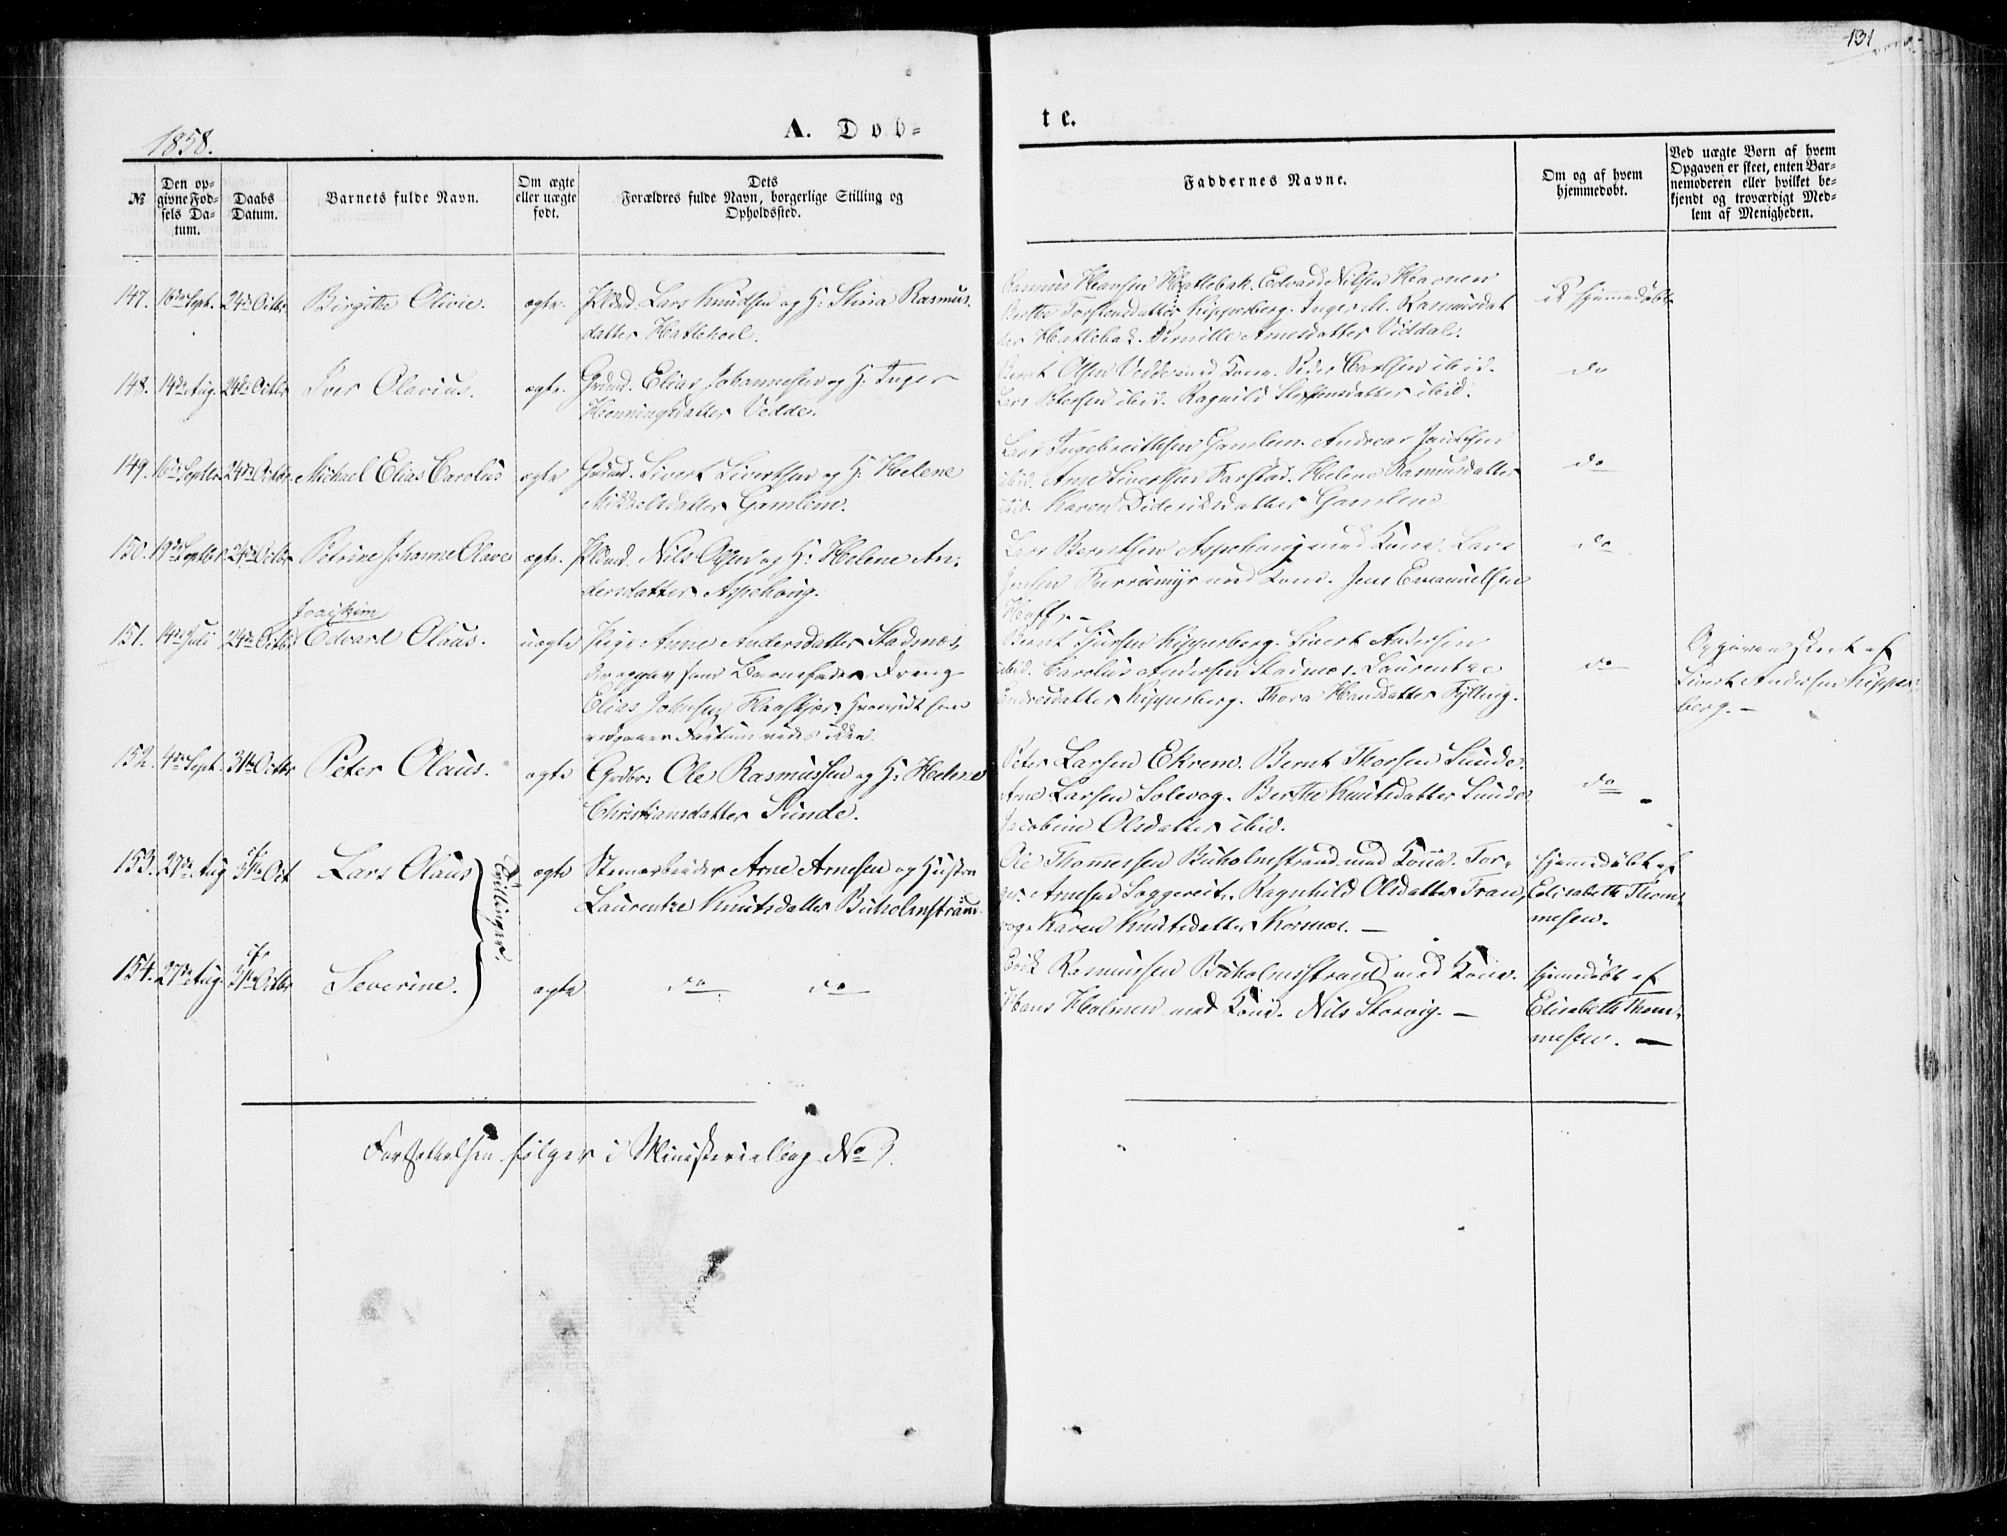 131
1858.
A. Døb-
te.
№
Den op-
givne Fød-
sels Da-
tum.
Daabs
Datum.
Barnets fulde Navn.
Om ægte
eller uægte
født.
Dets
Forældres fulde Navn, borgerlige Stilling og
Opholdssted.
Faddernes Navne.
Om og af hvem
hjemmedøbt.
Ved uægte Børn af hvem
Opgaven er skeet, enten Bar-
nemoderen eller hvilket be-
kjendt og troværdigt Med-
lem af Menigheden.
147. 16de Sept. 24de Octbr Birgithe Olivie. ægte. Lars Knudsen og H: Rasmus-
datter Hatlehoel.
Rasmus Hansen Hatlebak. Edvard Nilsen
Berthe Torstensdatter Kipperberg. Inger M. Rasmusdat
ter Hatlebak. Pernille Arnesdatter Viddal.
ei hjemmedøbt
148. 14de Aug. 24de Octbr Iver Olavius. ægte. Grdmd. Elias Johannesen og H. Inger
Henningsdatter Vedde.
Bernt Olsen Vedde med Kone. Peder Carlsen ibid.
Lars Petersen ibid. Ragnild Steffensdatter ibid.
do
149. 16de Septbr 24de Octbr. Michael Elias Carolus ægte Grdmd. Sivert Sivertsen og H. Helene
Mikkelsdatter Gamlem.
Lars Ingebrigtsen Gamlem. Andreas
ibid. Arne Sivertsen Farstad. Helene Rasmusdatter
ibid. Karen Dideriksdatter Gamlem
do
150. 19de Septbr. 24de Octbr Petrine Johanne Olave ægte. Nils Olsen og H: Helene An-
dersdatter Aspehoug.
Lars Berntsen Aspehoug med Kone. Lars
Jensen Furremyr med Kone. Jens Emanuelsen
Hoff. -
do
Joachim
151. 14de Juli 24de Octbr Edvard Olaus. uægte Pige Anne Andersdatter Stadsnæs,
der opgav som Barnefader Dreng
Elias Johnsen
Bernt Kipperberg. Sivert Andersen
ibid. Carolus Andersen Stadsnæs. Laurentze
Andersdatter Kipperberg. Thora Hansdatter Fylling.
do
Opgaven skeet af
Sivert Andersen Kipper-
berg. -
152. 4de Sept. 31te Octbr Peter Olaus. ægte Grdbr: Ole Rasmussen og H: Helene
Christiansdatter Sunde.
Peter Larsen Ekrem. Bernt Thorsen Sunde.
Arne Larsen Solevog. Berthe Knutsdatter Sunde
Jacobine Olsdatter ibid.
do
153. 27de Aug 31te Oct Lars Olaus ægte Arne Arnesen og Hustru
Laurentze Knutsdatter Buholmstrand.
Tvillinger.
Ole Thommesen Buholmstrand med Kone. Tor-
ger Arnesen Ragnhild Olsdatter Tran-
vog. Karen Knutsdatter Korsnæs. -
hjemmedøbt af
Elisabeth Thom-
mesen.
154. 27de Aug. 31te Octbr Severine. ægte do do
Erik Rasmussen Buholmstrand med Kone.
Hans Holmen med Kone. Nils Storvig. -
hjemmedøbt af
Elisabeth Thom-
mesen. -
Fortsættelsen følger i Ministerialbog No